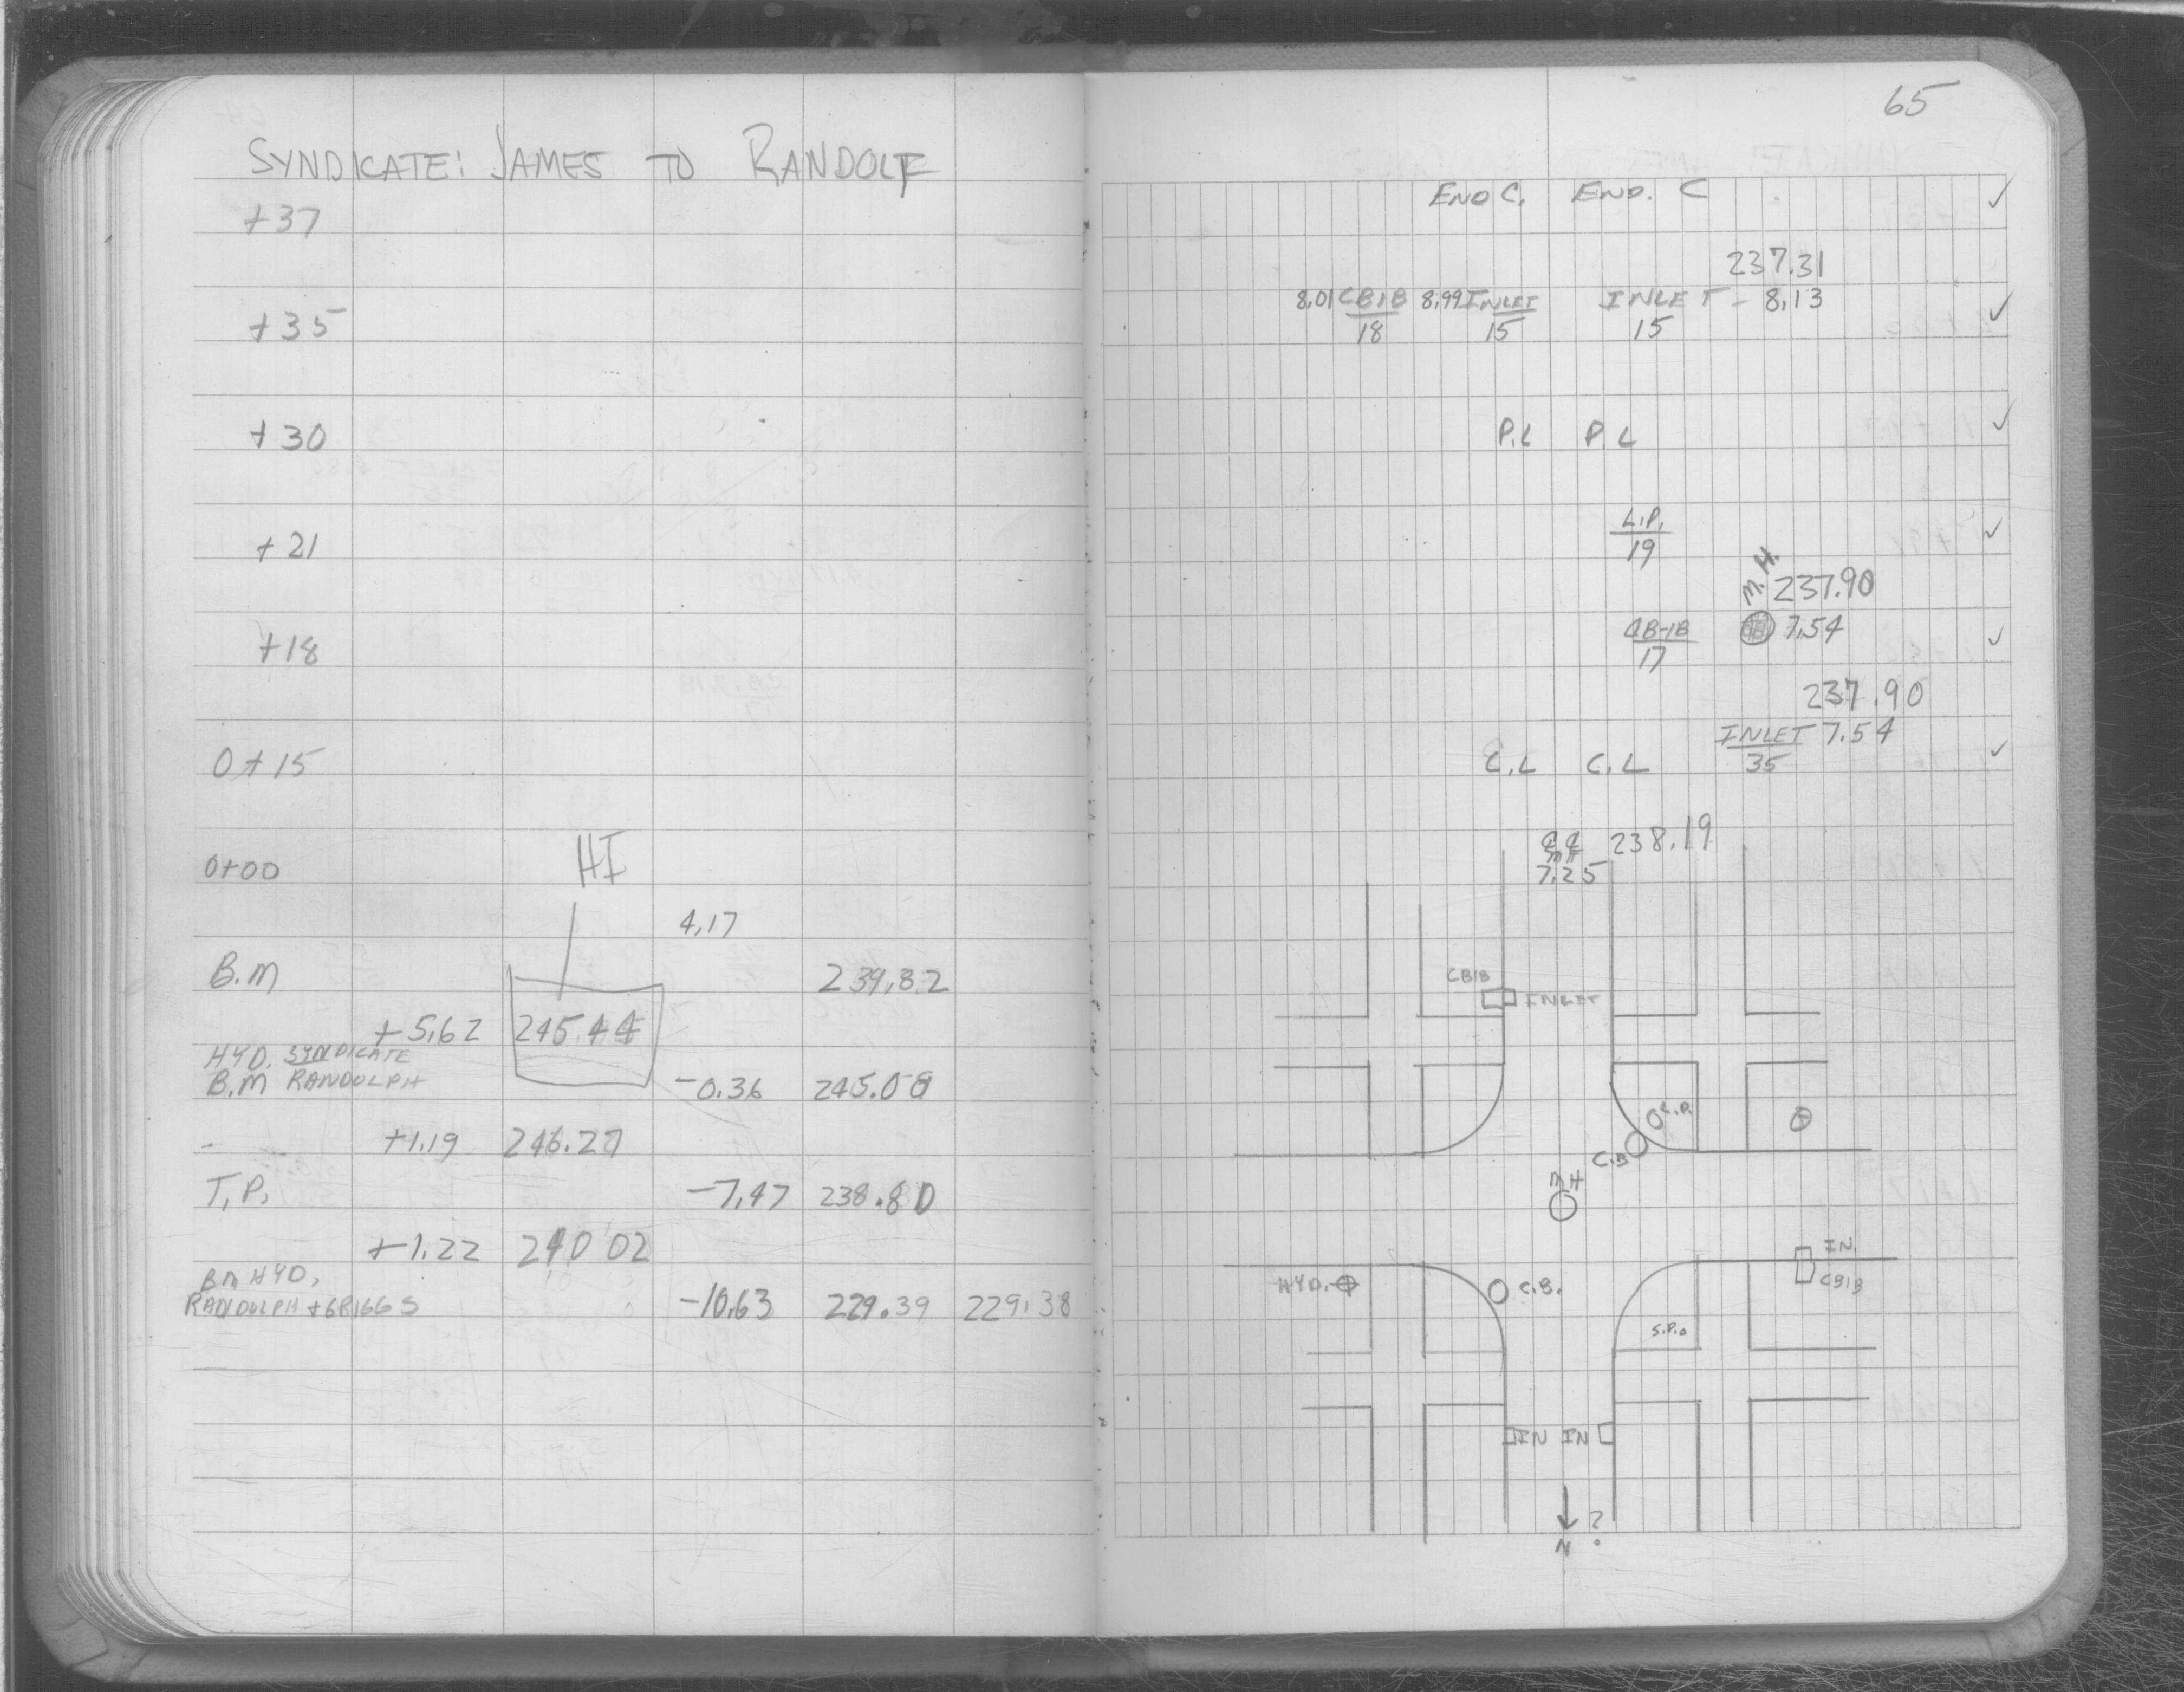 65
SYNDICATE: JAMES TO RANDOLF
+37
+35
+30
+21
+18
0+15
0+00
HI
4.17
B.M 239.82
+5.62 245.44
HYD. SYNDICATE
B.M RANDOLPH -0.36 245.08
+1.19 246.27
T.P. -7.47 238.80
+1.22 240.02
BM HYD.
RANDOLPH -10.63 229.39 229.38
END C. END. C ✓
237.31
8.01 CB1B 8.99 INLET INLET - 8.13 ✓
18 15 15
P.L P.L ✓
L.P. ✓
19
M.H. 237.90
CB-1B 7.54 ✓
17
237.90
INLET 7.54
C.L C.L 35 ✓
238.19
MH
7.25
CB1B
INLET
L.P.
C.B
MH
IN.
HYD. C.B. CB1B
S.P.
IN IN
N ?